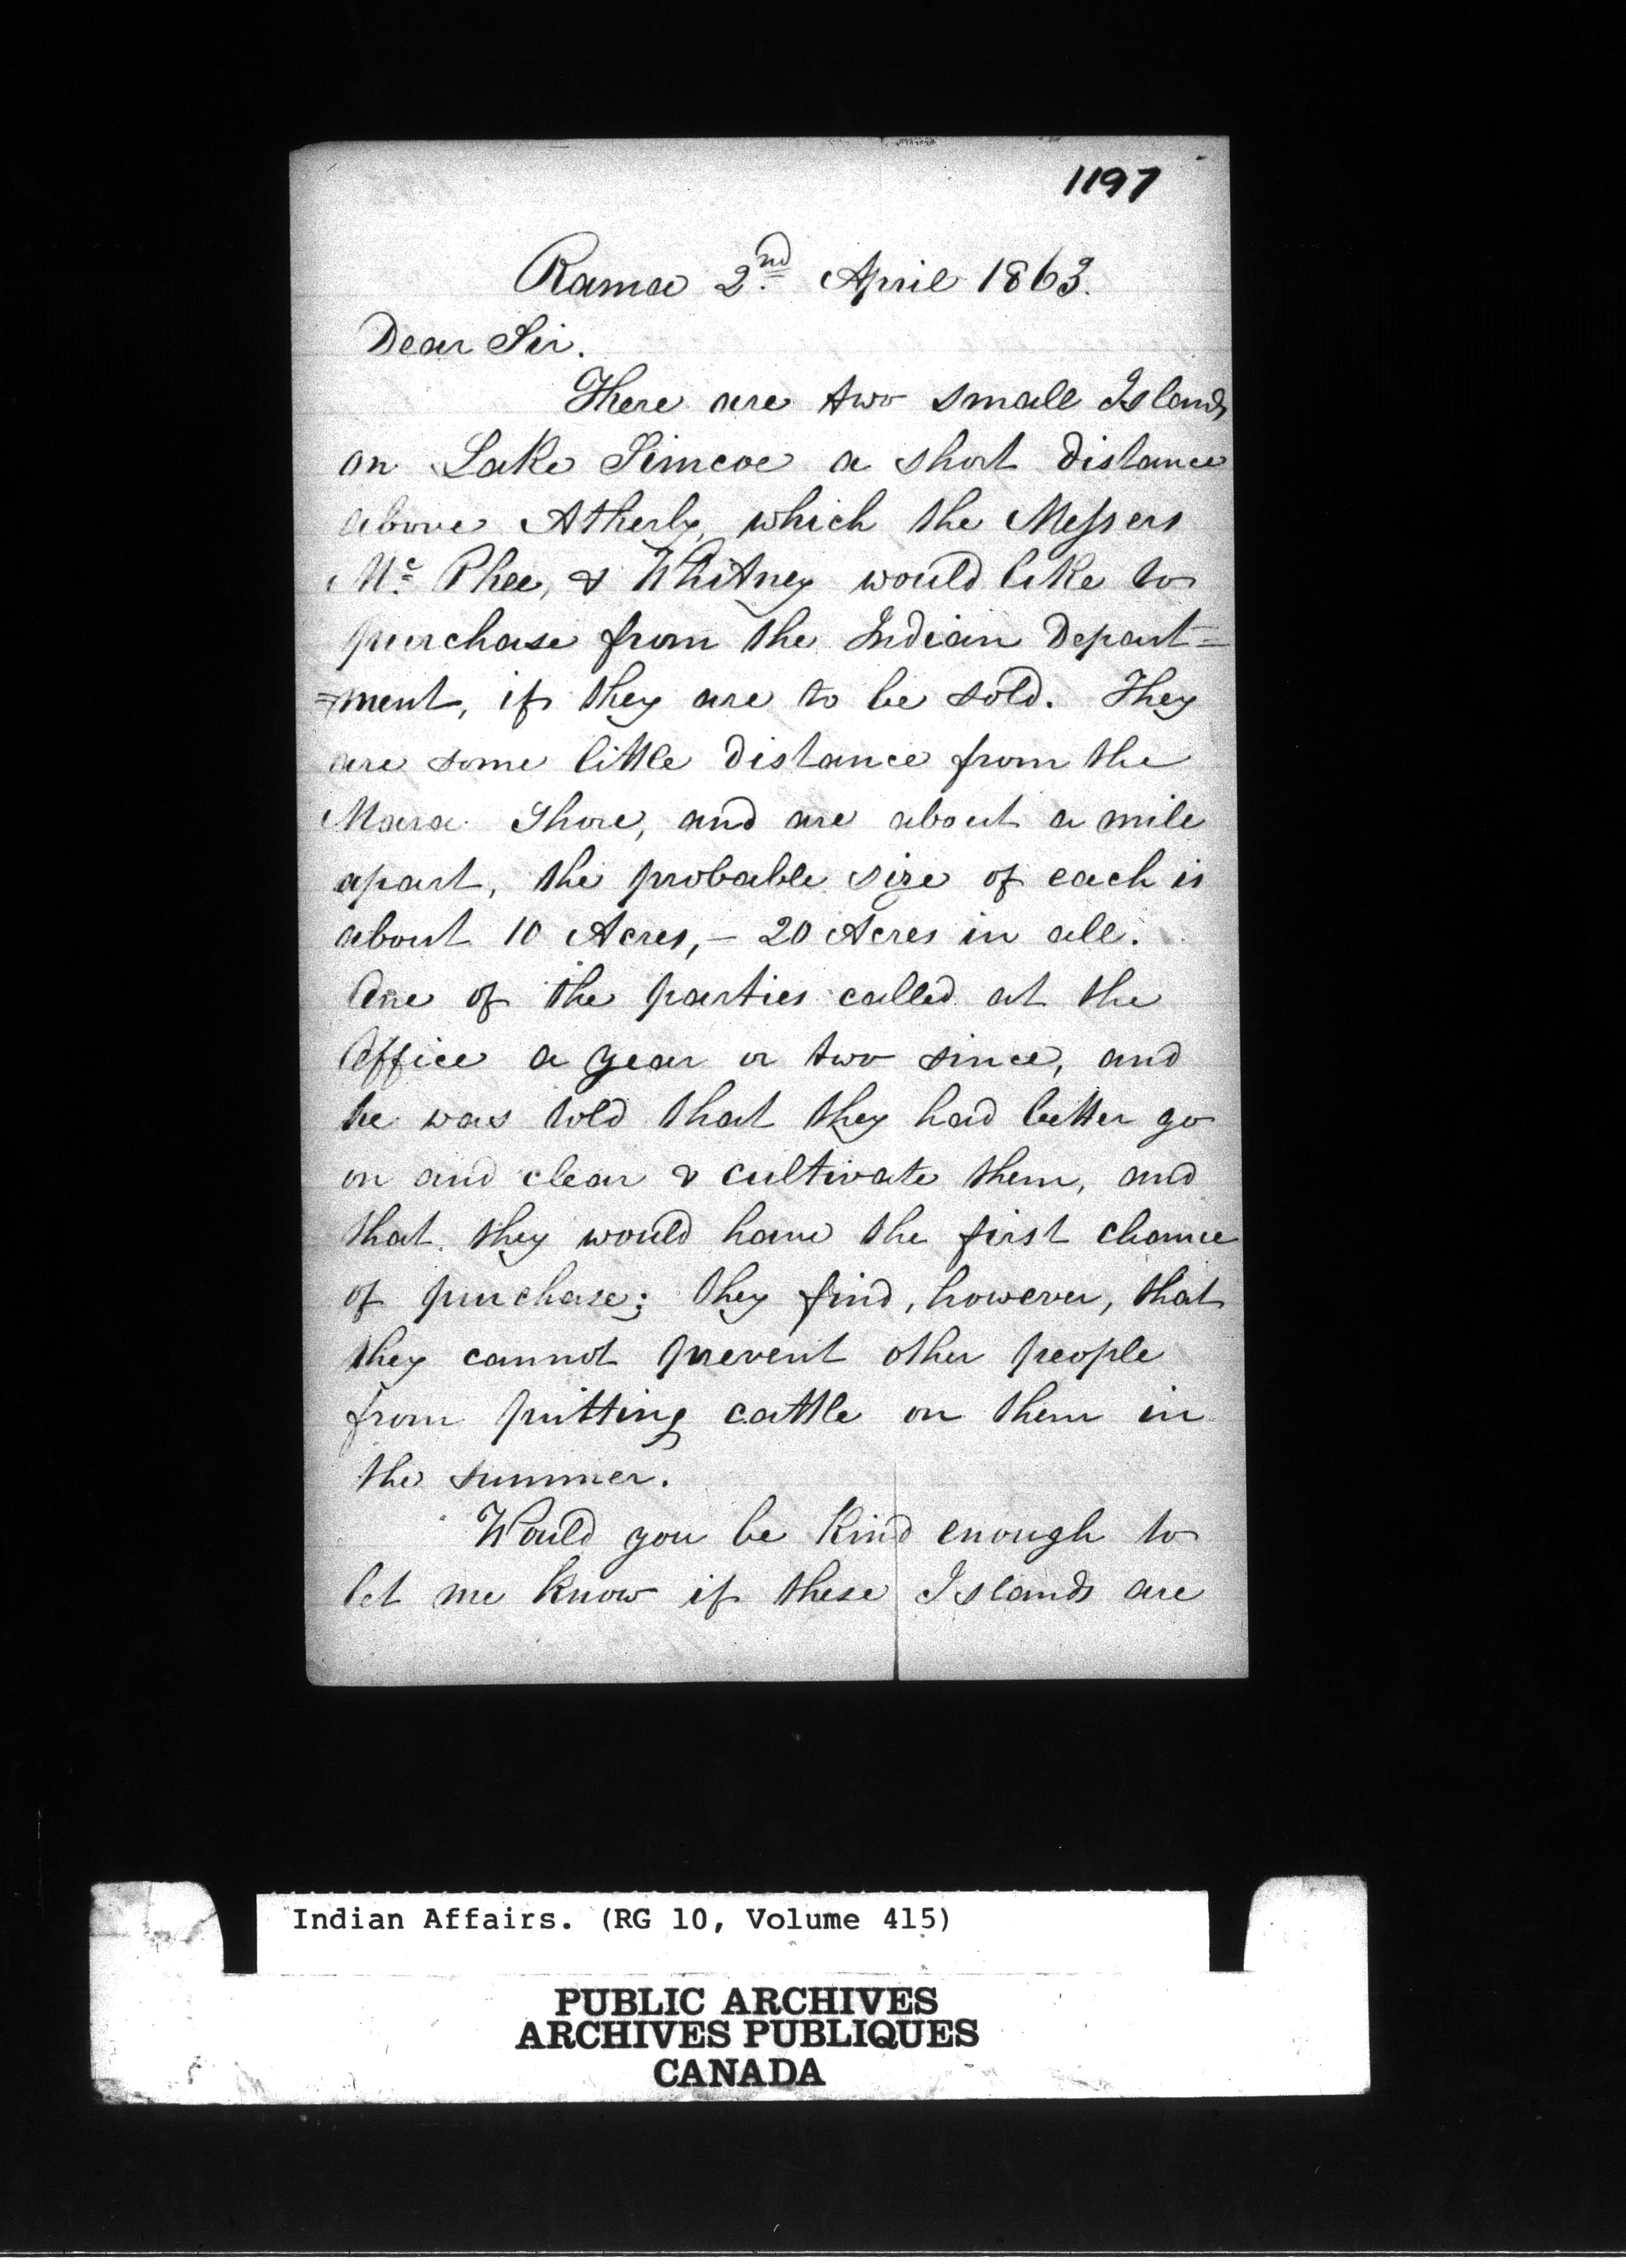 1197
Rama 2nd April 1863.
Dear Sir.
There are two small Islands
on Lake Simcoe a short distance
above Atherly, which the Messers
Mc Phee, & Whitney would like to
purchase from the Indian Depart=
=ment, if they are to be sold. They
are some little distance from the
Mara Shore, and are about a mile
apart, the probable size of each is
about 10 Acres, – 20 Acres in all.
One of the parties called at the
Office a year or two since, and
he was told that they had better go
on and clear & cultivate them, and
that they would have the first chance
of purchase; they find, however, that
they cannot prevent other people
from putting cattle on them in
the summer.
Would you be kind enough to
let me know if these Islands are
Indian Affairs. (RG 10, Volume 415)
PUBLIC ARCHIVES
ARCHIVES PUBLIQUES
CANADA